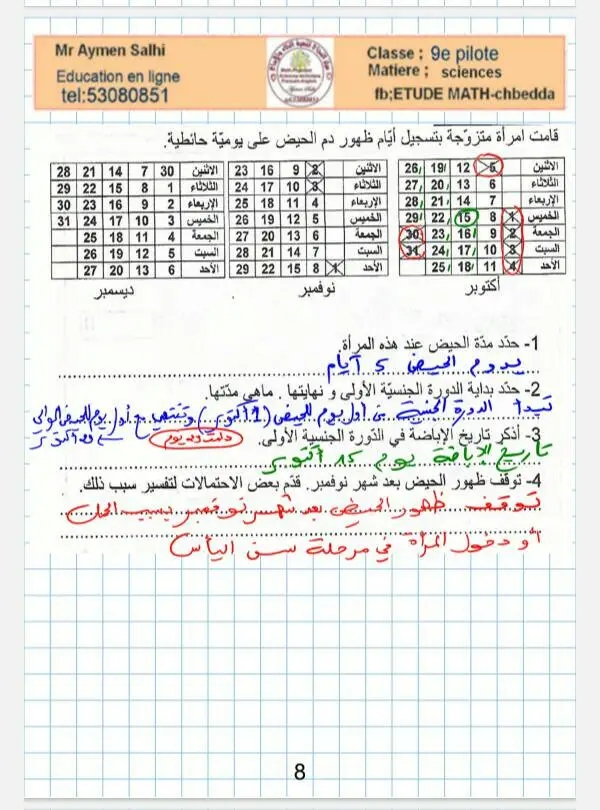 Mr Aymen Salhi
Education en ligne
tel:53080851
Classe ; 9e pilote
Matiere ; sciences
fb;ETUDE MATH-chbedda
قامت امرأة متزوّجة بتسجيل أيّام ظهور دم الحيض على يوميّة حائطية.
الاثنين 5 12 19 26
الثلاثاء 6 13 20 27
الإربعاء 7 14 21 28
الخميس 1 8 15 22 29
الجمعة 2 9 16 23 30
السبت 3 10 17 24 31
الأحد 4 11 18 25
أكتوبر
الاثنين 2 9 16 23
الثلاثاء 3 10 17 24
الإربعاء 4 11 18 25
الخميس 5 12 19 26
الجمعة 6 13 20 27
السبت 7 14 21 28
الأحد 1 8 15 22 29
نوفمبر
الاثنين 30 7 14 21 28
الثلاثاء 1 8 15 22 29
الإربعاء 2 9 16 23 30
الخميس 3 10 17 24 31
الجمعة 4 11 18 25
السبت 5 12 19 26
الأحد 6 13 20 27
ديسمبر
1- حدّد مدّة الحيض عند هذه المرأة.
يدوم الحيض 5 أيام
2- حدّد بداية الدورة الجنسيّة الأولى و نهايتها. ماهي مدّتها.
تبدأ الدورة الجنسية من أول يوم للحيض (1 أكتوبر) وتنتهي مع أول يوم للحيض الموالي
29 أكتوبر
دامت 29 يوم
3- أذكر تاريخ الإباضة في الدّورة الجنسية الأولى.
تاريخ الإباضة يوم 15 أكتوبر
4- توقّف ظهور الحيض بعد شهر نوفمبر. قدّم بعض الاحتمالات لتفسير سبب ذلك.
توقف ظهور الحيض بعد شهر نوفمبر بسبب الحمل
أو دخول المرأة في مرحلة سن اليأس
8